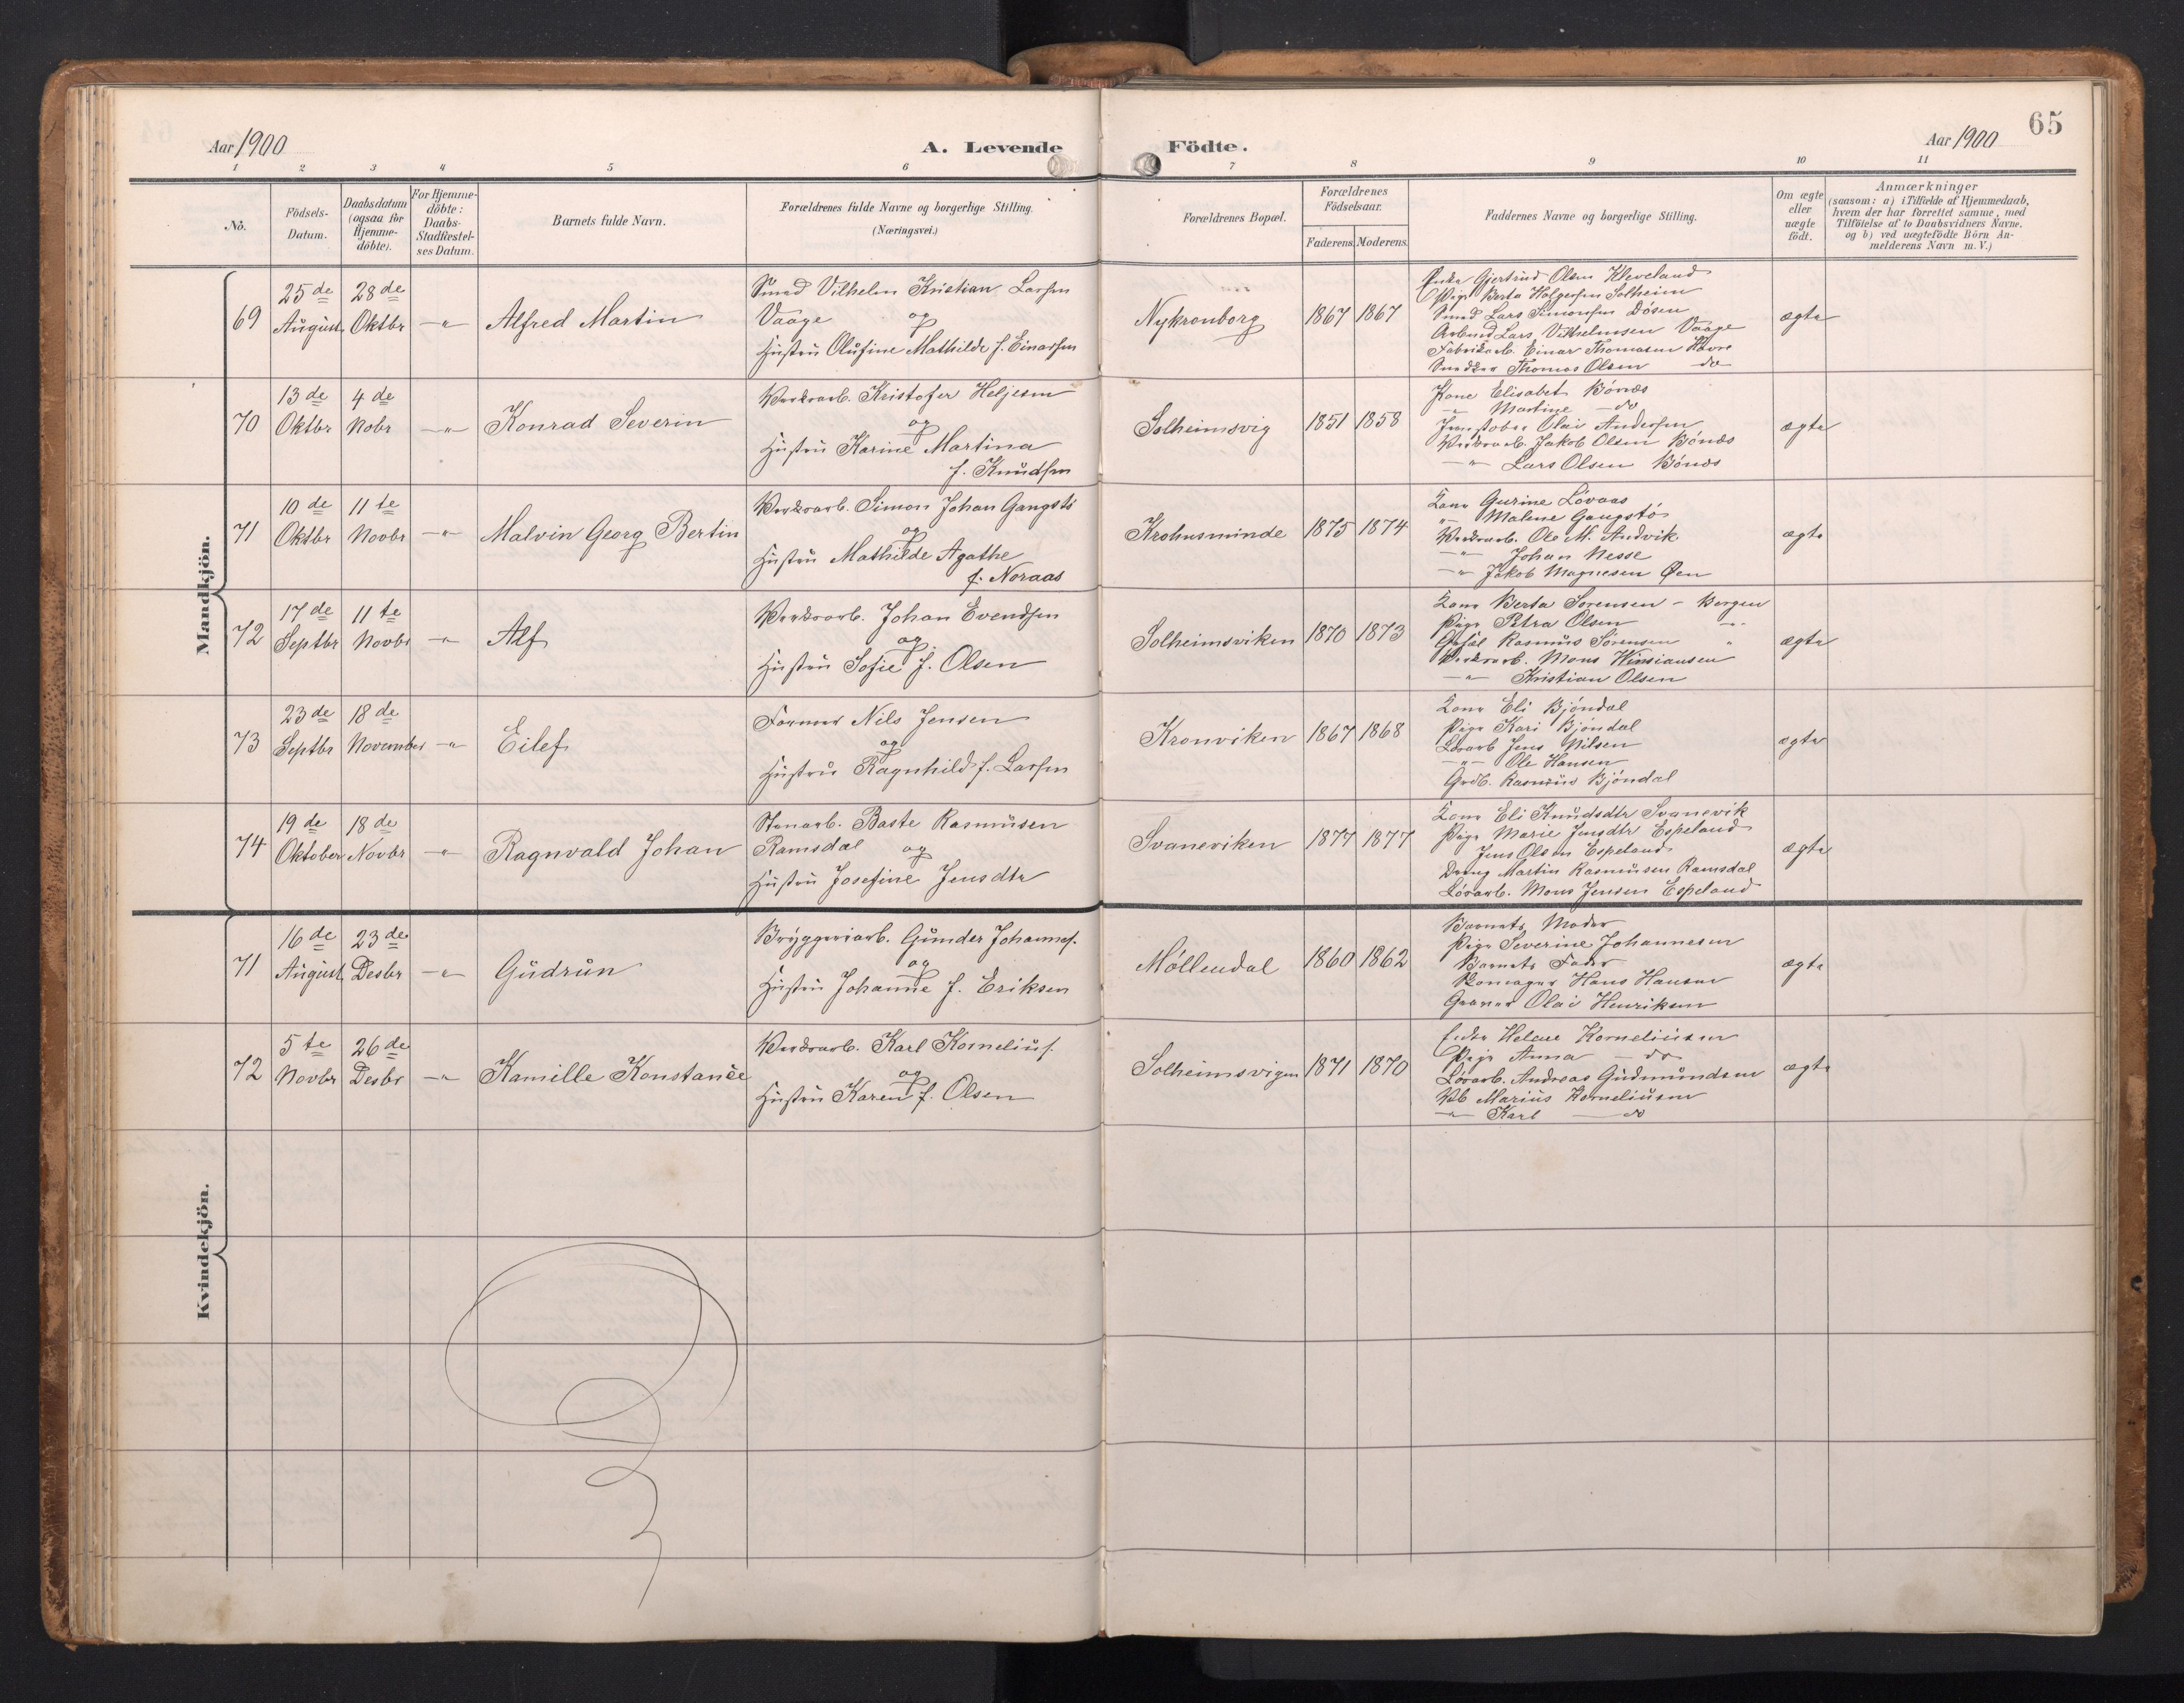 Aar 1900
A. Levende Födte.
Aar 1900
65
1 2 3 4 5 6 7 8 9 10 11
No.
Födsels-
Datum.
Daabsdatum
(ogsaa for
Hjemme-
döbte).
For Hjemme-
döbte:
Daabs-
Stadfæstel-
ses Datum.
Barnets fulde Navn.
Forældrenes fulde Navne og borgerlige Stilling.
(Næringsvei.)
Forældrenes Bopæl.
Forældrenes
Födselsaar.
Faderens. Moderens.
Faddernes Navne og borgerlige Stilling.
Om ægte
eller
uægte
födt.
Anmærkninger
(saasom: a) i Tilfælde af Hjemmedaab,
hvem der har forrettet samme, med
Tilföielse af to Daabsvidners Navne.
og b) ved uægtefödte Börn An-
melderens Navn m. V.)
Mandkjön.
69
25 de
August
28 de
Oktbr
-"-
Alfred Martin
Smed Vilhelm Kristian Larsen
Vaage og
Hustru Olufine Mathilde f. Einarsen
Nykronborg
1867 1867
Enke Gjertrud Olsen Kleveland
Pige Berta Holgersen Solheim
Smed Lars Simonsen Døsen
Arbmd Lars Vilhelmsen Vaage
Fabrikarb. Einar Thomasen Havre
Snedker Thomas Olsen do
ægte
70
13 de
Oktbr
4 de
Nobr
-"-
Konrad Severin
Værksarb. Kristofer Heljesen
og
Hustru Karine Martina
f. Knudsen
Solheimsvig
1851 1858
Kone Elisabet Bónæs
-"- Martine do
Jernstøber Olai Andersen
Værksarb. Jakob Olsen Bónæs
-"- Lars Olsen Bónæs
ægte
71
10 de
Oktbr
11 te
Novbr
-"-
Malvin Georg Bertin
Værksarb. Simon Johan Gangstø
og
Hustru Mathilde Agathe
f. Noraas
Krohnsminde
1875 1874
Kone Gurine Lóvaas
" Malene Gangstó
Værksarb. Ole M. Andvik
-"- Johan Nesse
-"- Jakob Magnesen Øen
ægte
72
17 de
Septbr
11 te
Novbr
-"-
Alf
Værksarb. Johan Evendsen
og
Hustru Sofie f. Olsen
Solheimsviken
1870 1873
Kone Berta Sorensen - Bergen
Pige Petra Olsen -"-
Rasmus Sórensen "
Værksarb. Mons
-"- Kristian Olsen
ægte
73
23 de
Septbr
18 de
November
-"-
Eilef
Former Nils Jensen
og
Hustru Ragnhild f. Larsen
Kronviken
1867 1868
Kone Eli Bjóndal
Pige Kari Bjóndal
Lósarb Jens Nilsen
-"- Ole Hansen
Grdb. Rasmus Bjóndal
ægte
74
19 de
Oktober
18 de
Novbr
-"-
Ragnvald Johan
Stenarb. Baste Rasmusen
Ramsdal og
Hustru Josefine Jensdtr
Svaneviken
1877 1877
Kone Eli Knudsdtr Svanevik
Pige Marie Jensdtr Espeland
Jens Olsen Espeland
Dreng Martin Rasmusen Ramsdal
Lósarb. Mons Jensen Espeland
ægte
Kvindekjön.
71
16 de
August
23 de
Desbr
-"-
Gudrun
Bryggeriarb. Gunder Johannes.
og
Hustru Johanne f. Eriksen
Móllendal
1860 1862
Barnets Moder
Pige Severine Johannesen
Barnets Fader
Skomager Hans Hansen
Graver Olai Henriksen
ægte
72
5 te
Novbr
26 de
Desbr
-"-
Kamille Konstance
Værksarb. Karl Kornelius.
og
Hustru Karen f. Olsen
Solheimsvigen
1871 1870
Enke Helene Korneliusen
Pige Anna - do
Lósarb. Andreas Gudmundsen
Vb Marius Korneliusen
-"- Karl - do
ægte